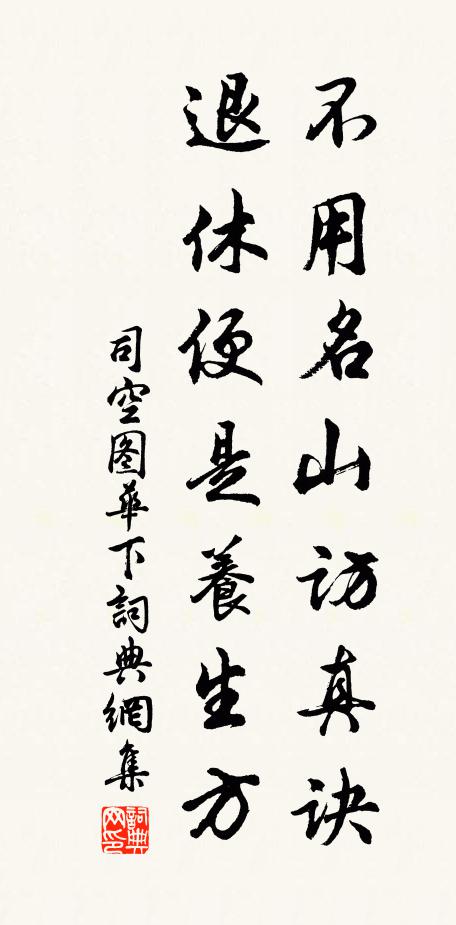 不用名山访真诀
退休便是養生方
司空图華下詞典網集
詞典网印